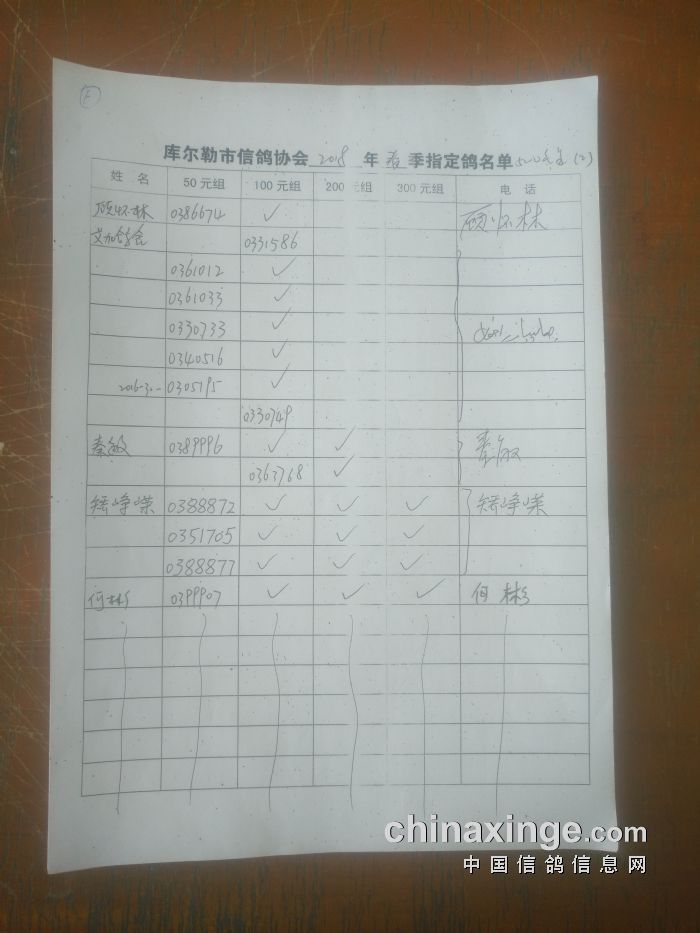 库尔勒市信鸽协会 2018 年 春 季指定鸽名单 500元 (2)
姓 名 50元组 100元组 200元组 300元组 电 话
顾怀林 0386674 ✓ 顾怀林
0331586
0361012 ✓
0361033 ✓
0330733 ✓
0340516 ✓
2016-30- 0305195 ✓
0330749
秦敏 0389996 ✓ ✓ 秦敏
0363768 ✓
0388872 ✓ ✓ ✓
0351705 ✓ ✓ ✓
0388877 ✓ ✓ ✓
何彬 0399907 ✓ ✓ ✓ 何彬
chinaxinge.com
中国信鸽信息网